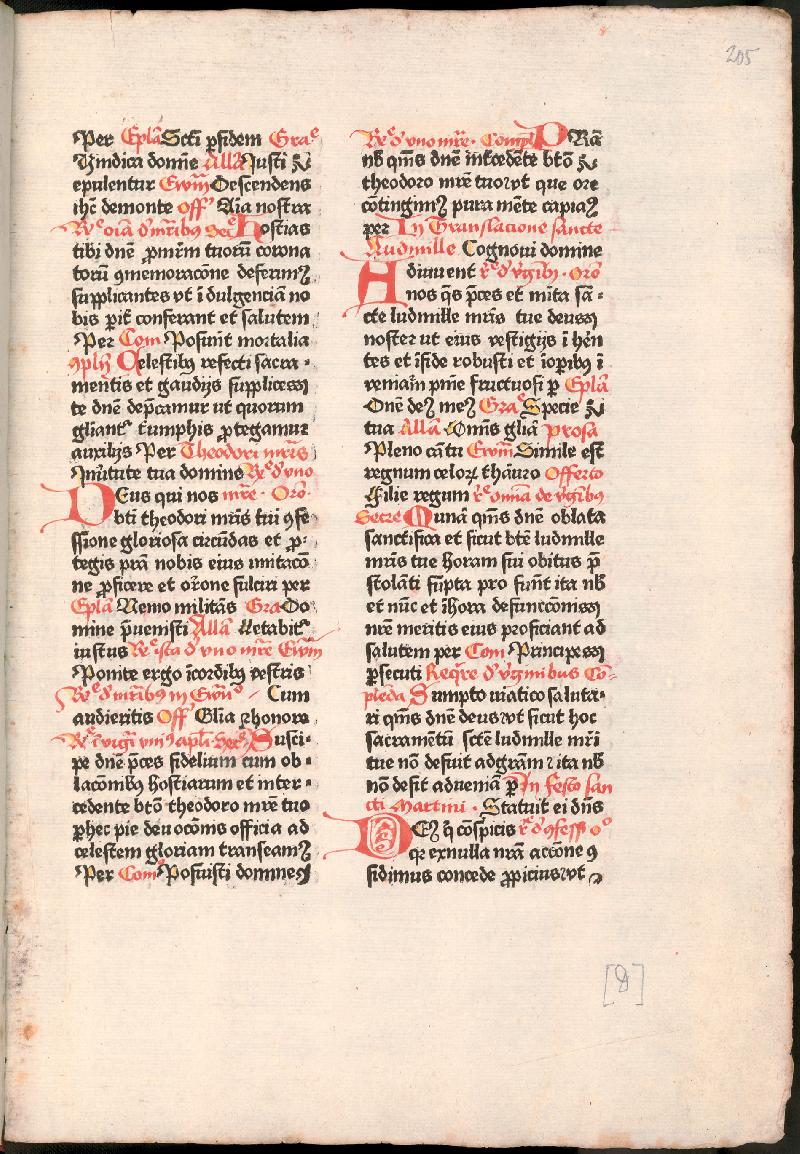 205
Per Epl̄a Scti p̱fidem Gra͛
Vindica domīe All̄a Iusti ⁊
epulentur Ewm̄ Descendens
ihc̄ demonte off͛ Aīa nostra
Re͛ oīa d' mr̄ibus Sec͛ Hostias
tibi dn̄e ꝓmr̄m tuorū corona
torū ꝯmemoracōne deferimꝰ
supplicantes vt ī dulgenciā no
bis ꝑit̄ conferant et salutem
Per Com Posur̄it mortalia
ꝯpl̄ Celestibꝰ refecti sacra-
mentis et gaudijs supplices
te dn̄e dep̄camur ut quorum
gliant͛ triumphis ꝓtegamur
auxilijs Per Theodori mr̄is
In v̓tute tua domine Re͛ d' vno
DEus qui nos mr̄e · Oro͛ ·
bti theodori mr̄is tui ꝯfe
ssione gloriosa circūdas et ꝓ-
tegis p̄rā nobis eius imitacō
ne ꝓficere et or̄one fulciri per
Epl̄a Nemo militās Gra Do
mine p̄uenisti All̄a Letabit͛
iustus Re͛ ista d' vno mr̄e Ewm̄
Ponite ergo ī cordibꝰ vestris
Re͛ d' mr̄ibus in Ewn̄° · Cum
audieritis Off͛ Glīa ⁊ honore
Susci-
pe dn̄e p̄ces fidelium cum ob-
lacōnibꝰ hostiarum et inter-
cedente btō theodoro mr̄e tuo
ꝑ hec pie deuocōnis officia ad
celestem gloriam transeamꝰ
Per Com͛ Posuisti domine
Re͛ d' vno mr̄e · Compl̄ PRa͞
nb̄ qm̄s dn̄e int̄cedēte btō ⁊
theodoro mr̄e tuo vt que ore
cōtingimꝰ pura mēte capiaꝰ
per In Translacione sancte
Ludmille Cognoui domine
ADiuuent r͛ d' v̓gībꝰ · Oro͛
nos q̄s p̄ces et mīta sā-
cte ludmille mr̄is tue deus
noster ut eius vestigijs ī hēn
tes et ī fide robusti et ī oꝑibꝰ ī
veniam̄ pme fructuosi ꝑ Epl̄a
Dn̄e deꝰ meꝰ Gra͛ Specie ⁊
tua All̄a Omīs glīa Prosa
Pleno cātu Ewm̄ Simile est
regnum celoꝝ thāuro Offerto
Filie regum r͛ omīa de v̓gībꝰ
Secre͛ Quna͞ qm̄s dn̄e oblata
sanctifica et sicut btē ludmille
mr̄is tue horam sui obitus p̄
stolāti sūpta pro fuīt ita nb̄
et nūc et ī hora defunccōnis
nr̄e meritis eius proficiant ad
salutem per Com͛ Principes
ꝑsecuti Reqr̄e d' v̓gīnibus Co-
pleda Sumpto uiatico saluta-
ri qm̄s dn̄e deus vt sicut hoc
sacramentū sctē ludmille mr̄i
tue nō defuit ad grām ⁊ ita nb̄
nō desit ad veniā ꝑ In festo san
cti Martini · Statuit ei dn̄s
DEꝰ q̄ cōspicis r͛ d' ꝯfess͛ o͛
qꝛ ex nulla nr̄a accōne ꝯ
fidimus concede ꝓpicius vt
[8]